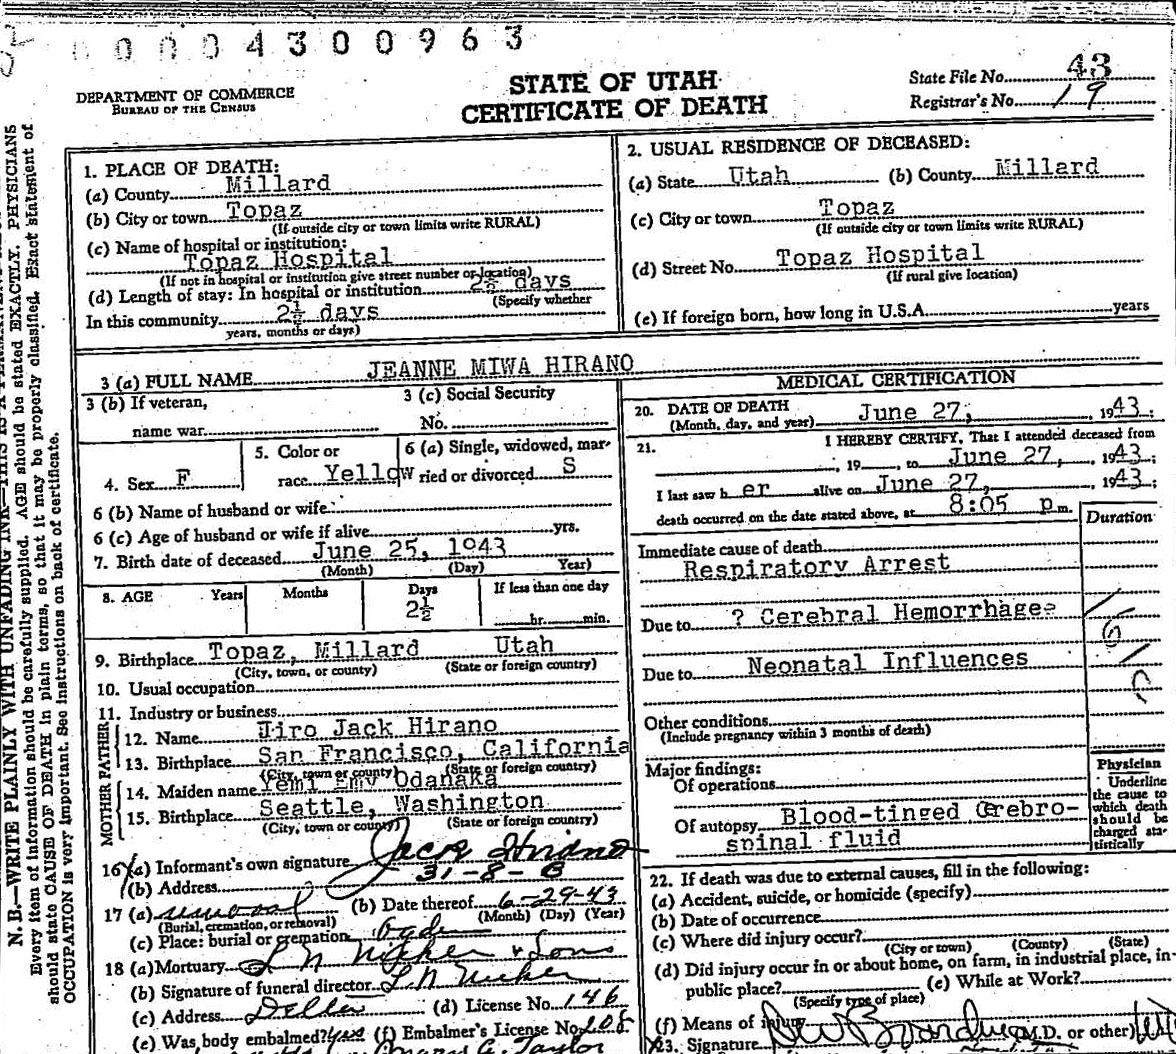 00004300963
DEPARTMENT OF COMMERCE
BUREAU OF THE CENSUS
STATE OF UTAH
CERTIFICATE OF DEATH
State File No. 43
Registrar's No. 19
N. B.—WRITE PLAINLY WITH UNFADING INK—THIS IS A
Every item of information should be carefully supplied. AGE should be stated EXACTLY. PHYSICIANS
should state CAUSE OF DEATH in plain terms, so that it may be properly classified. Exact statement of
OCCUPATION is very important. See instructions on back of certificate.
1. PLACE OF DEATH:
(a) County Millard
(b) City or town Topaz
(If outside city or town limits write RURAL)
(c) Name of hospital or institution:
Topaz Hospital
(If not in hospital or institution give street number or location)
(d) Length of stay: In hospital or institution 2½ days
(Specify whether
In this community 2½ days
years, months or days)
2. USUAL RESIDENCE OF DECEASED:
(a) State Utah (b) County Millard
(c) City or town Topaz
(If outside city or town limits write RURAL)
(d) Street No. Topaz Hospital
(If rural give location)
(e) If foreign born, how long in U.S.A. years
3 (a) FULL NAME JEANNE MIWA HIRANO
3 (b) If veteran,
name war
3 (c) Social Security
No.
4. Sex F
5. Color or
race Yellow
6 (a) Single, widowed, mar-
ried or divorced S
6 (b) Name of husband or wife
6 (c) Age of husband or wife if alive yrs.
7. Birth date of deceased June 25, 1943
(Month) (Day) Year)
8. AGE Years Months Days If less than one day
2½ hr. min.
9. Birthplace Topaz, Millard Utah
(City, town, or county) (State or foreign country)
10. Usual occupation
11. Industry or business
FATHER
12. Name Jiro Jack Hirano
13. Birthplace San Francisco, California
(City, town or county) (State or foreign country)
MOTHER
14. Maiden name Yemi Emy Odanaka
15. Birthplace Seattle, Washington
(City, town or county) (State or foreign country)
16 (a) Informant's own signature Jack Hirano
(b) Address 31-8-
17 (a) removal (b) Date thereof 6-29-43
(Burial, cremation, or removal) (Month) (Day) (Year)
(c) Place: burial or cremation Ogden
18 (a) Mortuary & Sons
(b) Signature of funeral director
(c) Address Delta (d) License No. 146
(e) Was body embalmed? yes (f) Embalmer's License No.
G. Taylor
MEDICAL CERTIFICATION
20. DATE OF DEATH June 27, 1943
(Month, day, and year)
21. I HEREBY CERTIFY, That I attended deceased from
, 19 , to June 27, , 1943;
I last saw h er alive on June 27, , 1943;
death occurred on the date stated above, at 8:05 p m.
Duration
Immediate cause of death
Respiratory Arrest
Due to ? Cerebral Hemorrhage?
Due to Neonatal Influences
Other conditions
(Include pregnancy within 3 months of death)
Major findings:
Of operations
Of autopsy Blood-tinged Cerebro-
spinal fluid
Physician
Underline
the cause to
which death
should be
charged sta-
tistically
22. If death was due to external causes, fill in the following:
(a) Accident, suicide, or homicide (specify)
(b) Date of occurrence
(c) Where did injury occur?
(City or town) (County) (State)
(d) Did injury occur in or about home, on farm, in industrial place, in-
public place? (e) While at Work?
(Specify type of place)
(f) Means of injury
23. Signature M.D. or other)